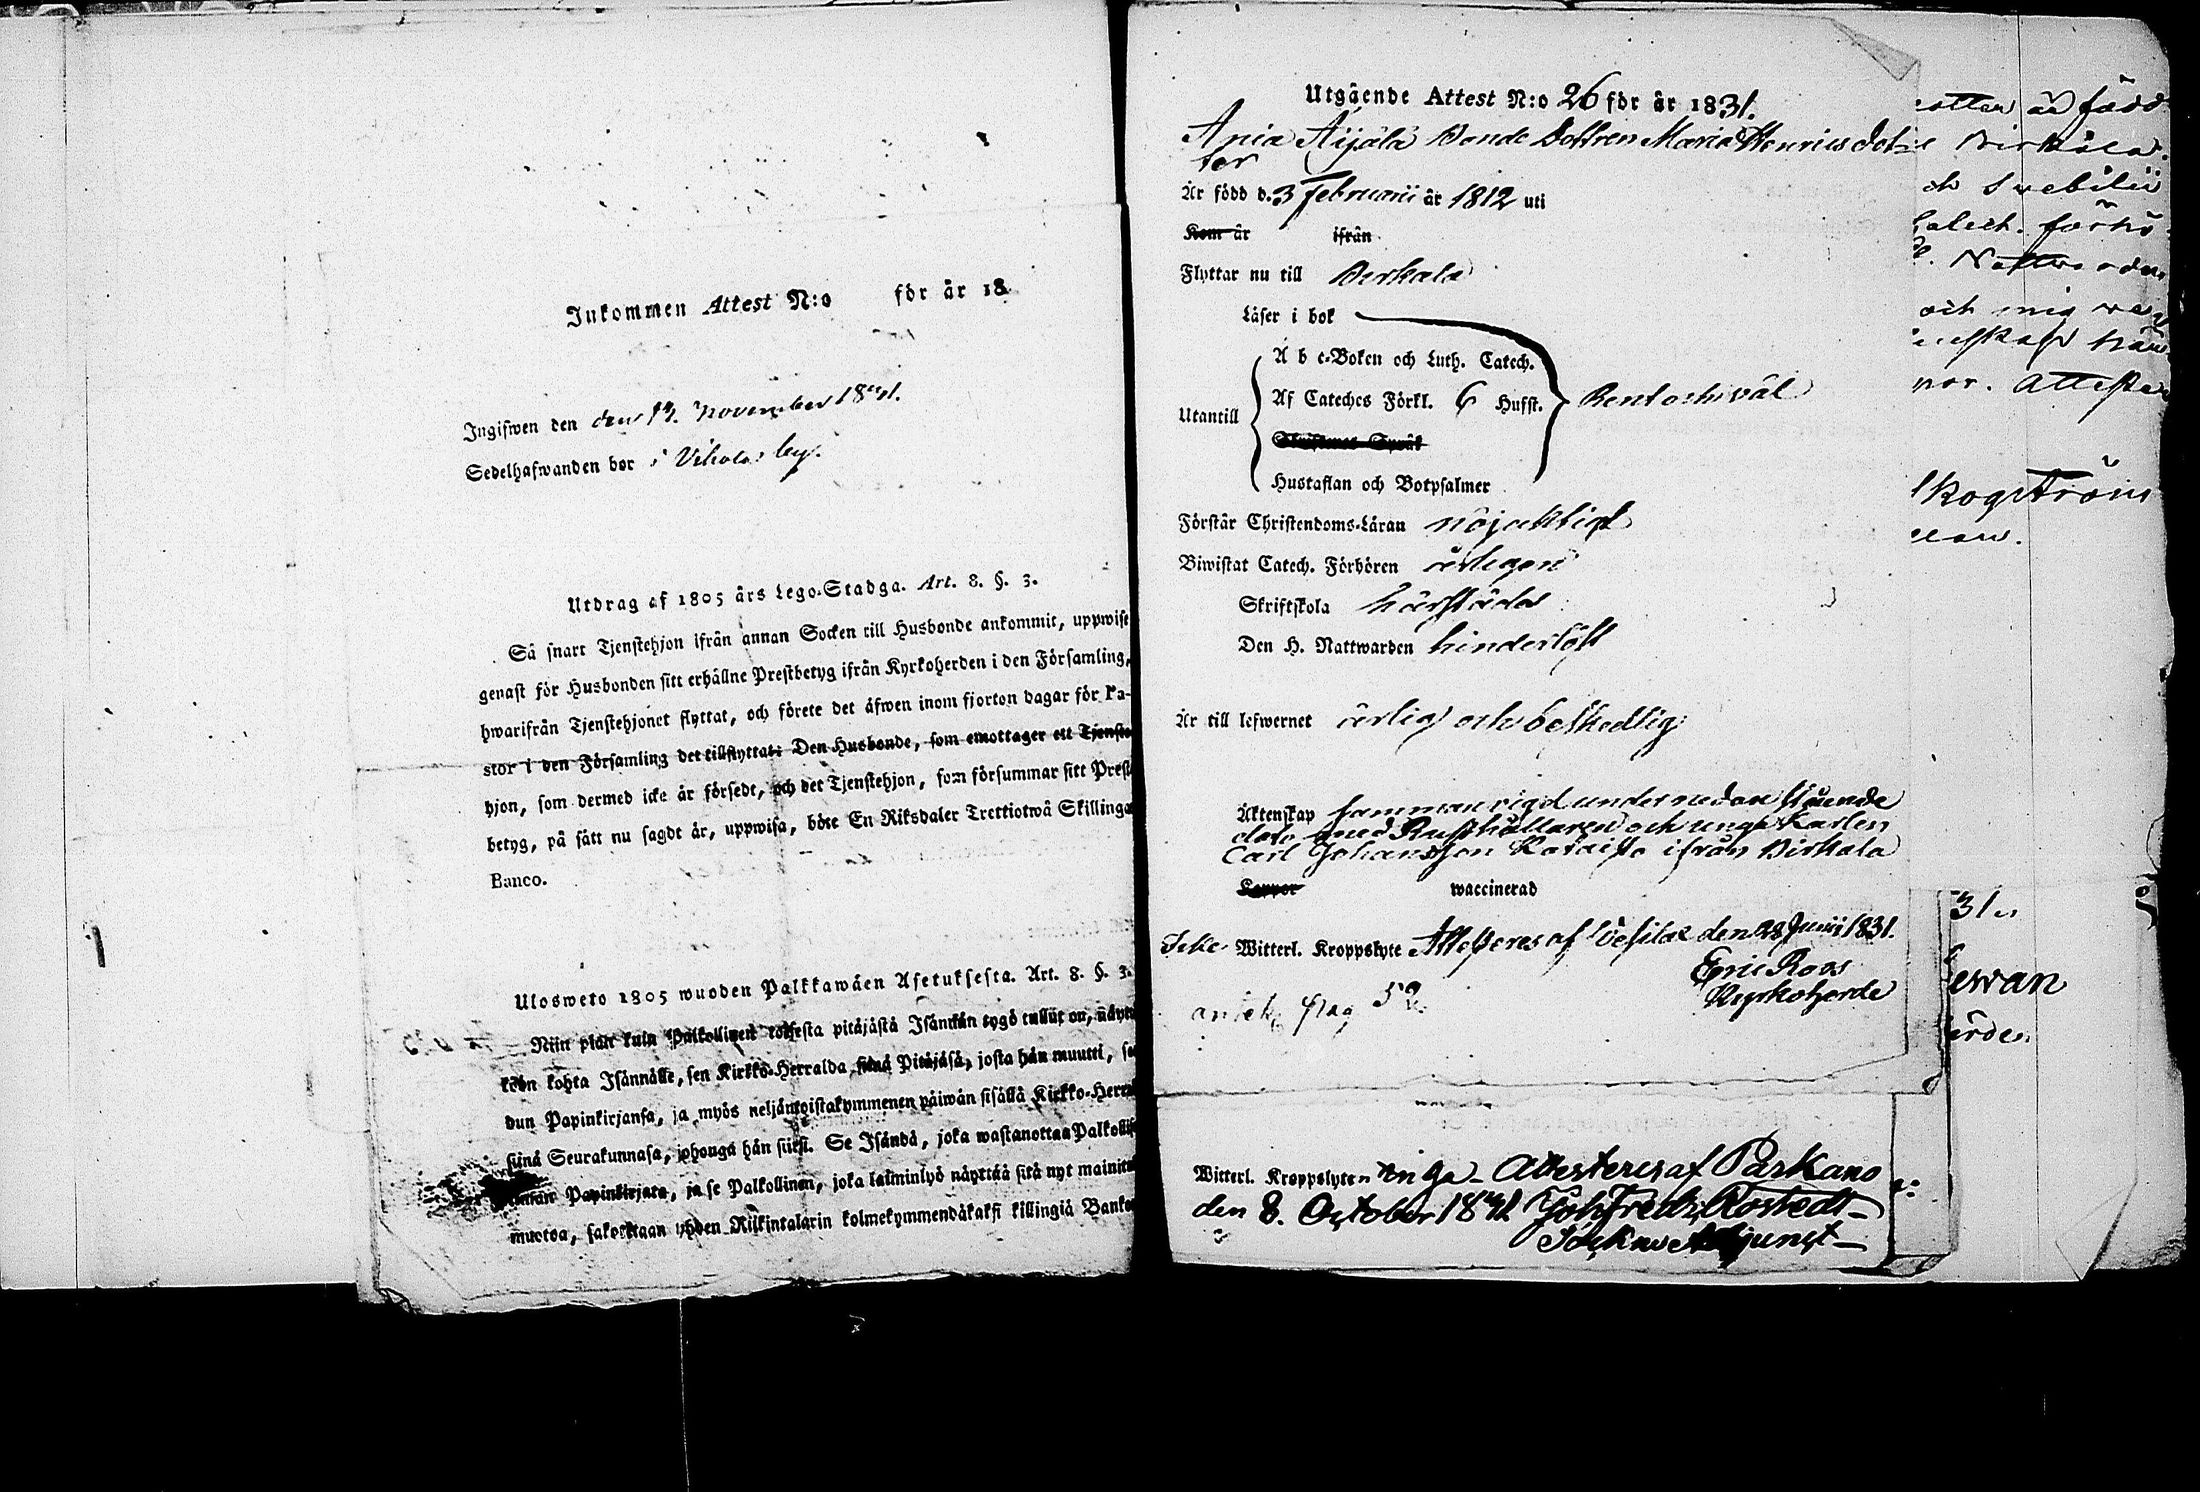 Inkommen Attest N:o för år 18
Ingifwen den den 13. november 1831.
Sedelhafwanden bor i by.
Utdrag af 1805 års Lego-Stadga. Art. 8. §. 3.
Så snart Tjenstehjon ifrån annan Socken till Husbonde ankommit, uppwise
genast för Husbonden sitt erhållne Prestbetyg ifrån Kyrkoherden i den Församling,
hwarifrån Tjenstehjonet flyttat, och förete det äfwen inom fjorton dagar för Pa-
stor i den Församling det tillflyttat: Den Husbonde, som emottager ett Tjenste
hjon, som dermed icke är försedt, och det Tjenstehjon, som försummar sitt Prest
betyg, på sätt nu sagdt är, uppwisa, böte En Riksdaler Trettiotwå Skillingar
Banco.
Ulosweto 1805 wuoden Palkkawäen Asetuksesta. Art. 8. §. 3.
Niin pian kuin Palkollinen toisesta pitäjästä Isännän tygö tullut on, näyttä
köön kohta Isännälle, sen Kirkko-Herralda siinä Pitäjäsä, josta hän muutti, sa
dun Papinkirjansa, ja myös neljäntoistakymmenen päiwän sisällä Kirkko-Herra
siinä Seurakunnasa, johonga hän siirsi. Se Isändä, joka wastanottaa Palkollis
Papinkirjata, ja se Palkollinen, joka laiminlyö näyttää sitä nyt mainitu
muotoa, sakotetaan yhden Riikintalarin kolmekymmendäkaksi killingiä Banko
Utgående Attest N:o 26 för år 1831.
Ania Äijälä Bonde Dottren Maria Henricsdot
ter
Är född d. 3 Februarii år 1812 uti
Kom år ifrån
Flyttar nu till Birkala
Läser i bok
A b c-Boken och Luth. Catech.
Af Cateches Förkl. 6 Hufst. Rent och väl
Utantill
Skriftenes Språk
Hustaflan och Botpsalmer
Förstår Christendoms-Läran nöjaktigt
Biwistat Catech. Förhören årligen
Skriftskola härstädes
Den H. Nattwarden hinderlöst
Är till lefwernet ärlig och beskedlig
Äktenskap sammanvigd under nedan stående
dato med Rusthållaren och unga Karlen
Carl Johansson Kataisto ifrån Birkala
Koppor waccinerad
Icke Witterl. Kroppslyte Attesteras af Vesilax den 28 Junii 1831.
Eric Roos
Kyrkoherde
pag 52
Witterl. Kroppslyten inga Attesteras af Parkano
den 8. October 1831 Joh Fredr Rostedt
Sockne Adjunct
otter är född
Birkala
och Swebilii
Catech. förhö
Nattwarden
och mig
skap
nor. Attesteras
Skogström
31.
ewan